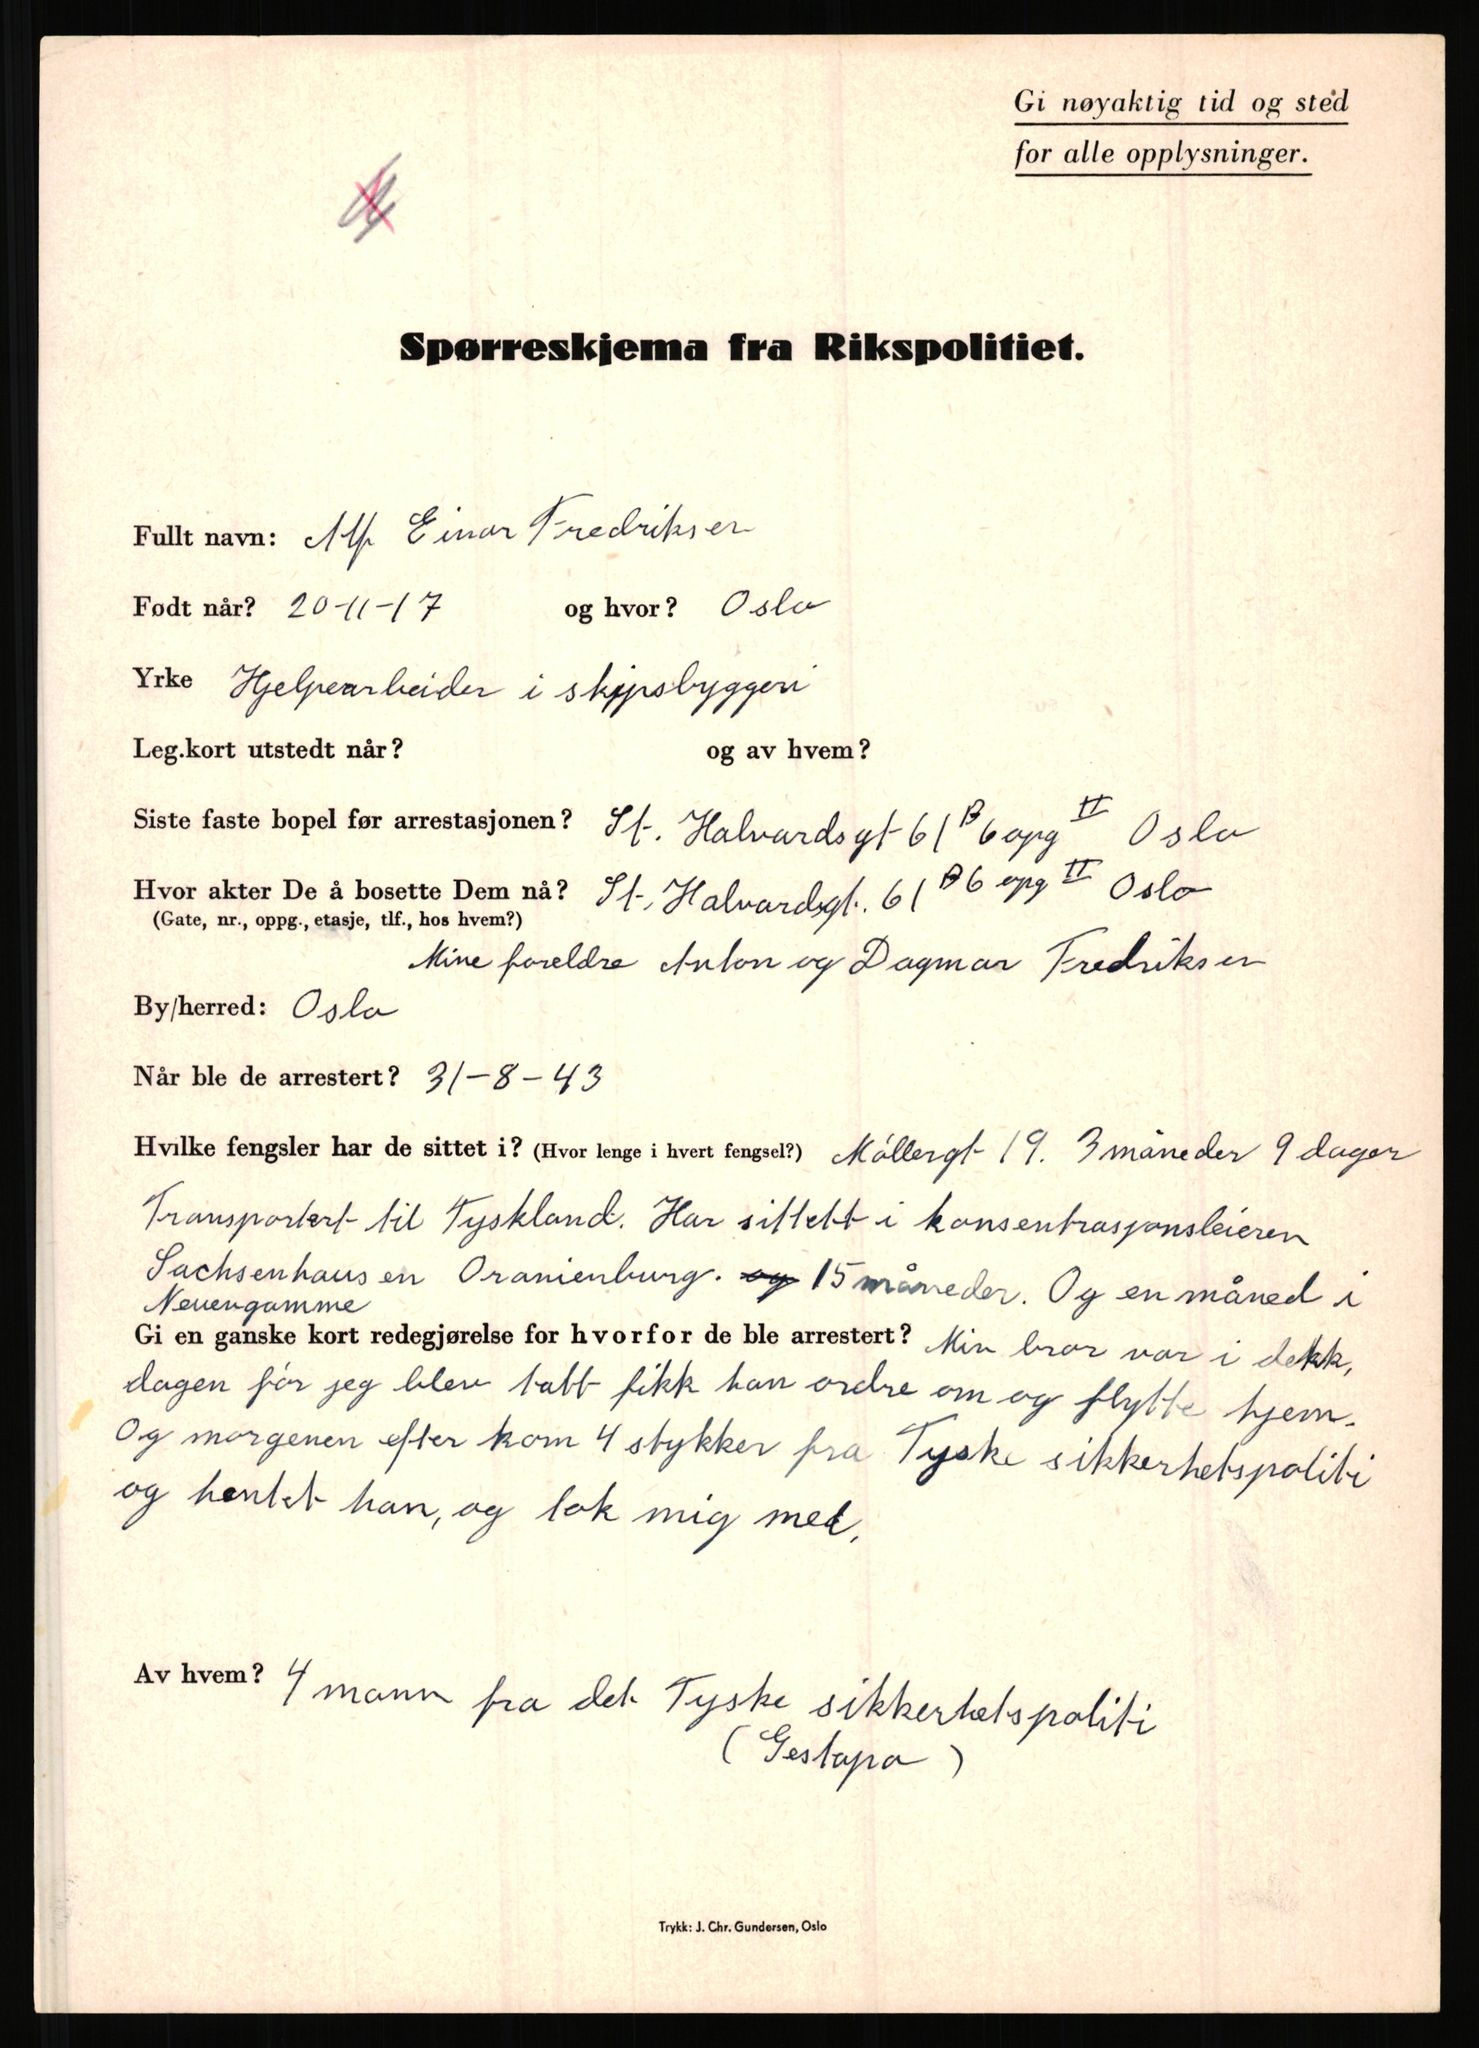 Gi nøyaktig tid og sted
for alle opplysninger.
Spørreskjema fra Rikspolitiet.
Fullt navn: Alf Einar Fredriksen
Født når? 20-11-17 og hvor? Oslo
Yrke Hjelpearbeider i skipsbyggeri
Leg.kort utstedt når? og av hvem?
Siste faste bopel før arrestasjonen? St. Halvardsgt 61 B 6 opg II Oslo
Hvor akter De å bosette Dem nå? St. Halvardsgt. 61 B 6 opg II Oslo
(Gate, nr., oppg., etasje, tlf., hos hvem?)
Mine foreldre Anton og Dagmar Fredriksen
By/herred: Oslo
Når ble de arrestert? 31-8-43
Hvilke fengsler har de sittet i? (Hvor lenge i hvert fengsel?) Møllergt 19. 3 måneder 9 dager
Transportert til Tyskland. Har sittett i konsentrasjonsleieren
Sachsenhausen Oranienburg. og 15 måneder. Og en måned i
Neuengamme
Gi en ganske kort redegjørelse for hvorfor de ble arrestert? Min bror var i dekk,
dagen før jeg blev tatt fikk han ordre om og flytte hjem.
Og morgenen efter kom 4 stykker fra Tyske sikkerhetspoliti
og hentet han, og tok mig med.
Av hvem? 4 mann fra det Tyske sikkerhetspoliti
(Gestapo)
Trykk: J. Chr. Gundersen, Oslo